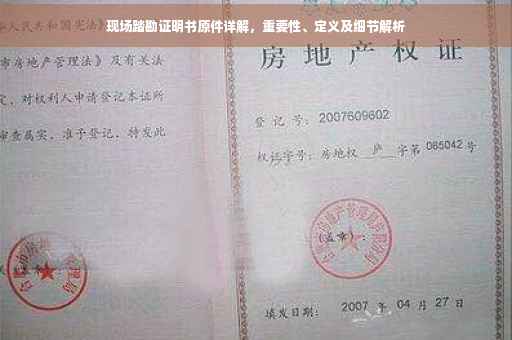 现场踏勘证明书原件详解，重要性、定义及细节解析
人民共和国宪法》
市房地产管理法》及有关法
定，对权利人申请登记本证所
审查属实，准予登记，特发此
房地产权证
登记号：2007609602
权证字号：房地权 庐 字第 085042 号
(盖章)：
填发日期：2007 年 04 月 27 日